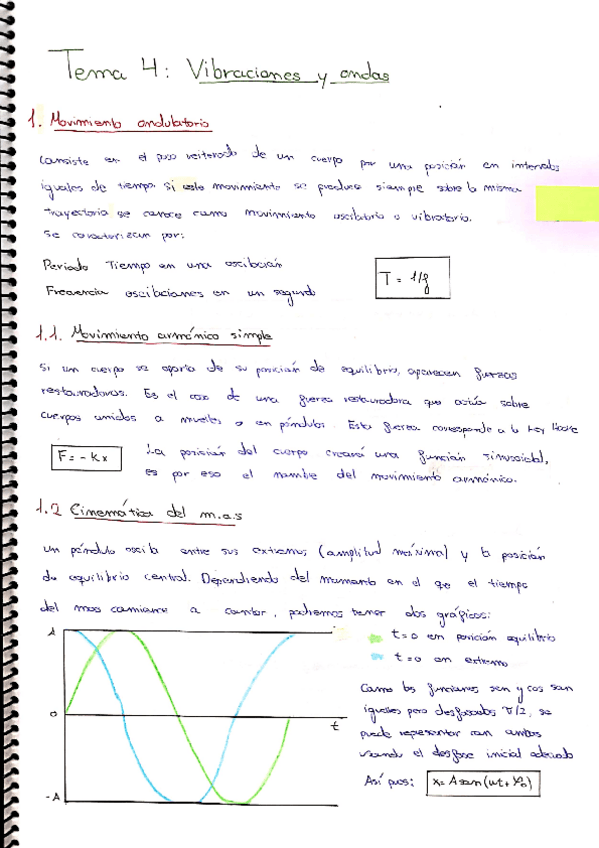 Tema 4: Vibraciones y ondas
1. Movimiento ondulatorio
Consiste en el paso reiterado de un cuerpo por una posición en intervalos
iguales de tiempo. Si este movimiento se produce siempre sobre la misma
trayectoria se conoce como movimiento oscilatorio o vibratorio.
Se caracterizan por:
Periodo Tiempo en una oscilación
Frecuencia oscilaciones en un segundo
T = 1/f
1.1. Movimiento armónico simple
Si un cuerpo se aparta de su posición de equilibrio, aparecen fuerzas
restauradoras. Es el caso de una fuerza restauradora que actúa sobre
cuerpos unidos a muelles o en péndulos. Esta fuerza corresponde a la Ley Hooke
F = - Kx
La posición del cuerpo creará una función sinusoidal,
es por eso el nombre del movimiento armónico.
1.2 Cinemática del m.a.s
Un péndulo oscila entre sus extremos (amplitud máxima) y la posición
de equilibrio central. Dependiendo del momento en el que el tiempo
del mas comience a contar, podremos tener dos gráficos:
A
0
-A
t
t=0 en posición equilibrio
t=0 en extremo
Como las funciones sen y cos son
iguales pero desfasados π/2, se
puede representar con ambos
usando el desfase inicial adecuado
Así pues: x= A sen (ωt + φ₀)